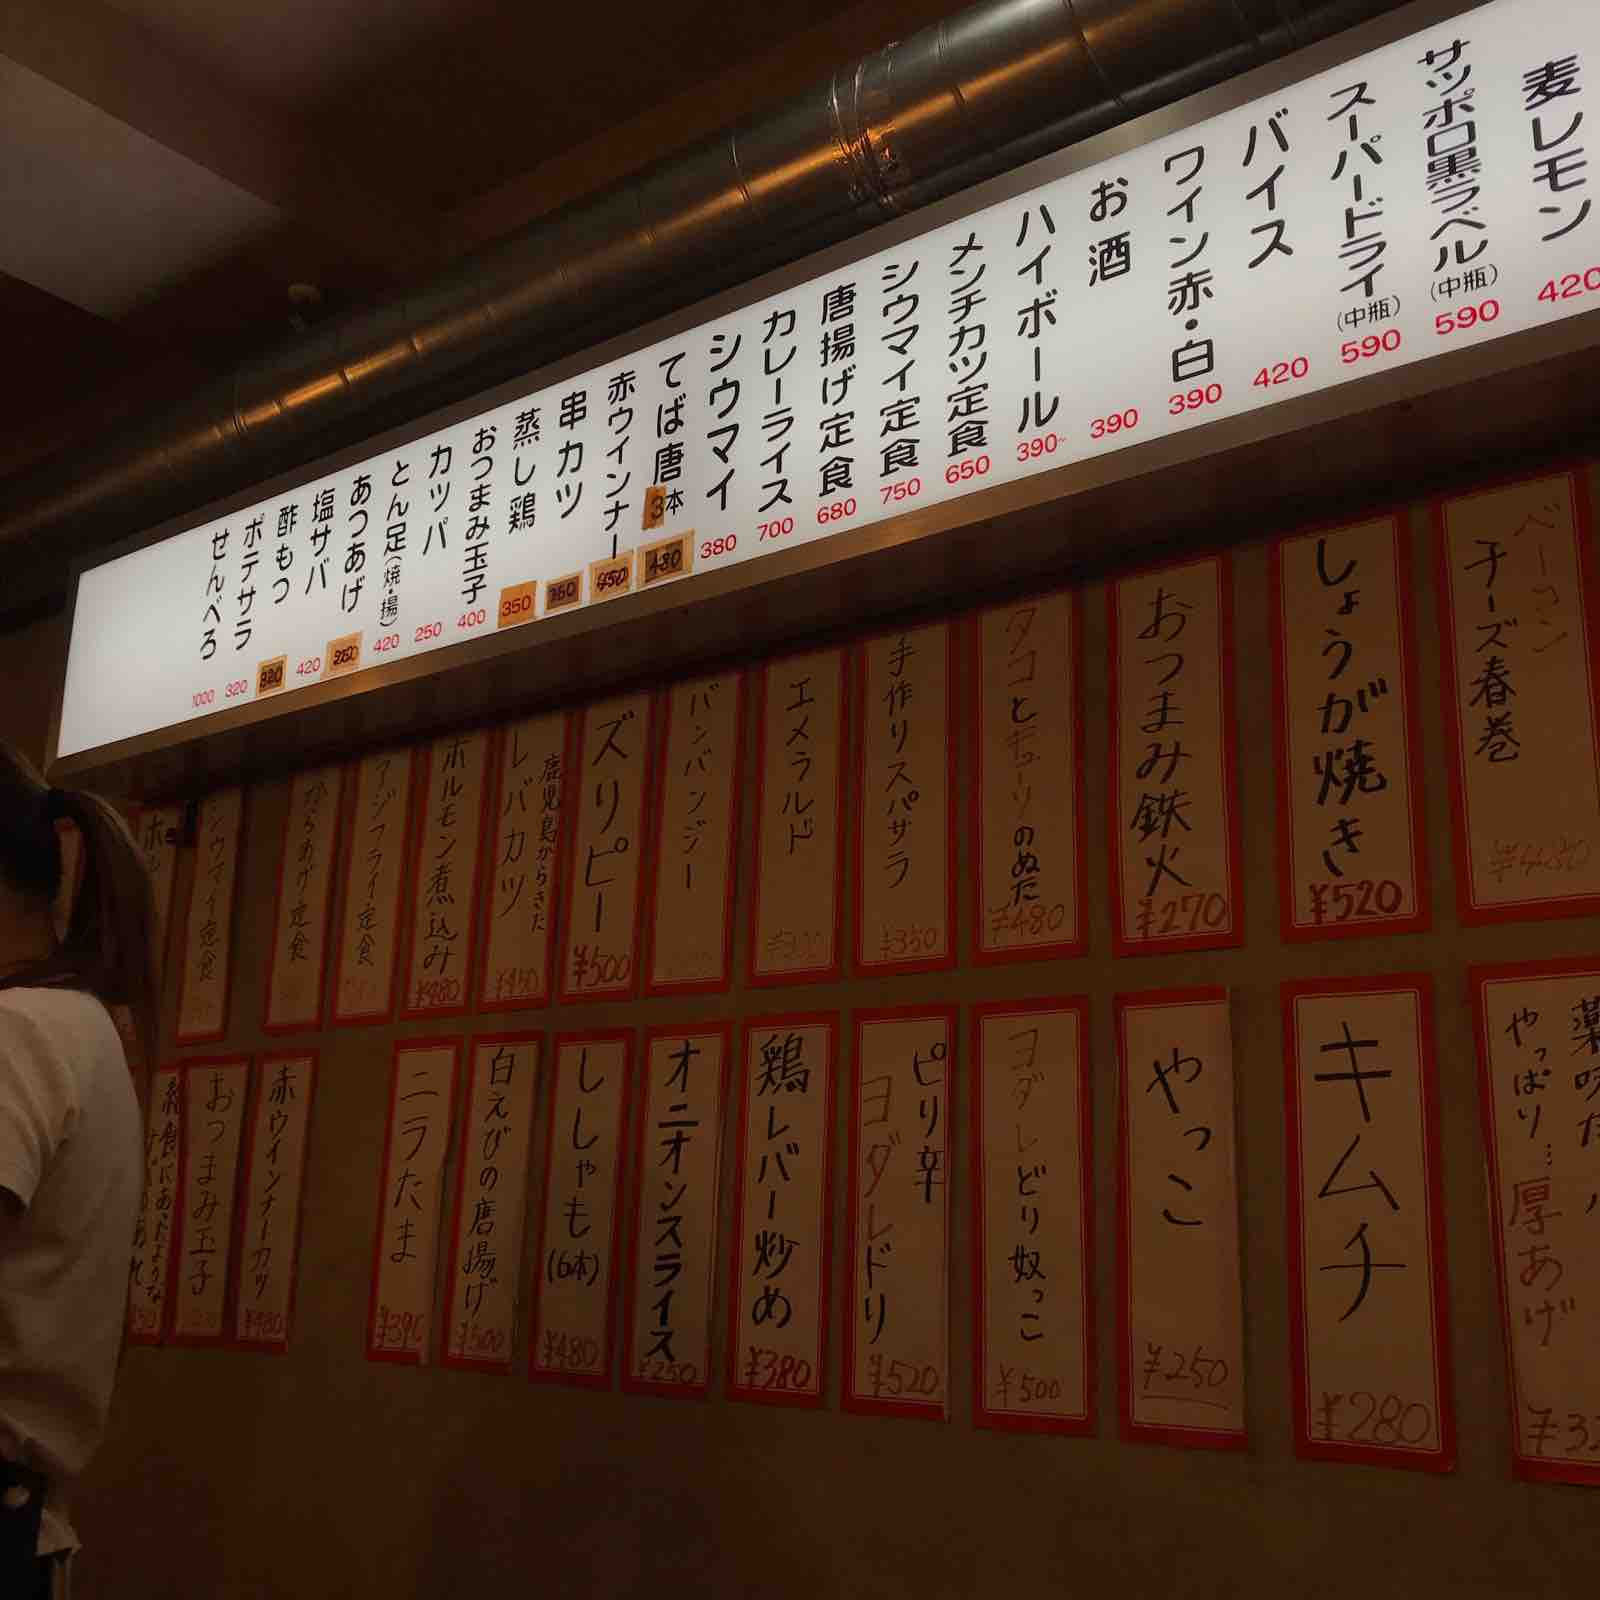 麦レモン 420
サッポロ黒ラベル(中瓶) 590
スーパードライ(中瓶) 590
バイス 420
ワイン赤・白 390
お酒 390
ハイボール 390~
メンチカツ定食 650
シウマイ定食 750
唐揚げ定食 680
カレーライス 700
シウマイ 380
てば唐3本 480
赤ウインナー 450
串カツ 350
蒸し鶏 350
おつまみ玉子 400
カッパ 250
とん足(焼・揚) 420
あつあげ
塩サバ 420
酢もつ 320
ポテサラ 320
せんべろ 1000
ベーコン
チーズ春巻
¥480
しょうが焼き
¥520
おつまみ鉄火
¥270
タコとキューリのぬた
¥480
手作りスパサラ
¥350
エメラルド
バンバンジー
ズリピー
¥500
鹿児島からきた
レバカツ
¥450
ホルモン煮込み
¥480
アジフライ定食
からあげ定食
シウマイ定食
薬味た
やっぱり…厚あげ
キムチ
¥280
やっこ
¥250
ヨダレどり奴っこ
¥500
ピリ辛
ヨダレドリ
¥520
鶏レバー炒め
¥380
オニオンスライス
¥250
ししゃも(6本)
¥480
白えびの唐揚げ
¥500
ニラたま
¥390
赤ウインナーカツ
¥480
おつまみ玉子
給食にあったような